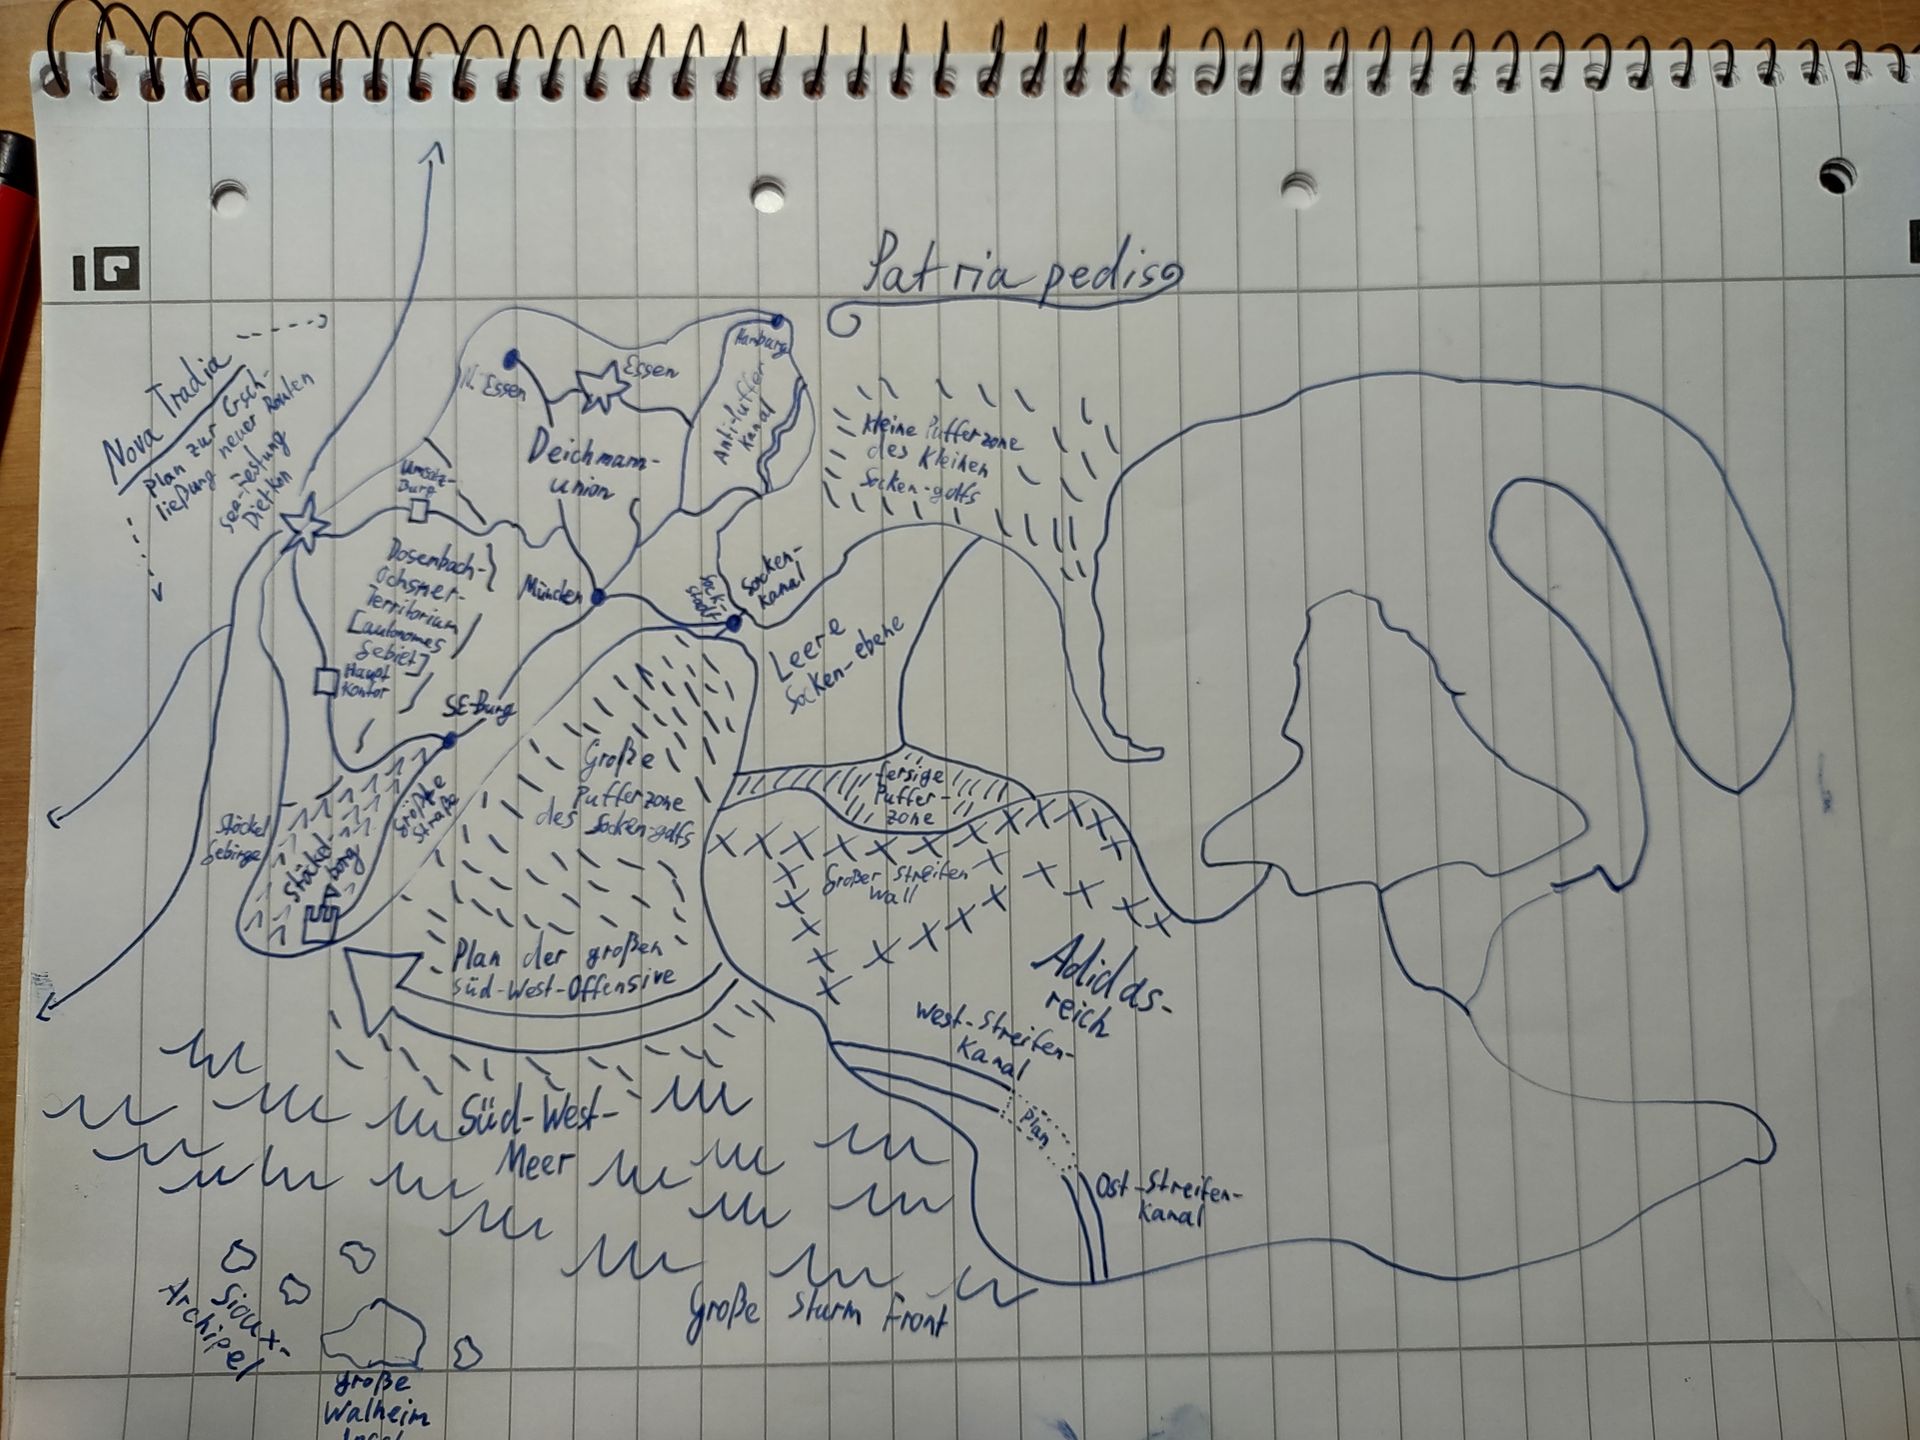 Patria pedis
Nova Tradia
Plan zur Ersch-
ließung neuer Routen
See-Festung
Dietikon
N. Essen
Essen
Hamburg
Anti-Puffer
Kanal
Deichmann-
union
Kleine Pufferzone
des Kleinen
Socken-golfs
Umsatz-
Burg
Dosenbach-
Ochsner-
Territorium
[autonomes
Gebiet]
Haupt
Kontor
München
Sock-
stadt
Socken-
Kanal
Leere
Socken-ebene
SE-Burg
Größte
Straße
Stöckel
Gebirge
Stöckel-
borg
Große
Pufferzone
des Socken-golfs
fersige
Puffer-
zone
Großer Streifen
Wall
Plan der großen
Süd-West-Offensive
Adidas-
reich
West-Streifen-
Kanal
Plan
Ost-Streifen-
Kanal
Süd-West-
Meer
Große Sturm Front
Sioux-
Archipel
große
Walheim
Insel